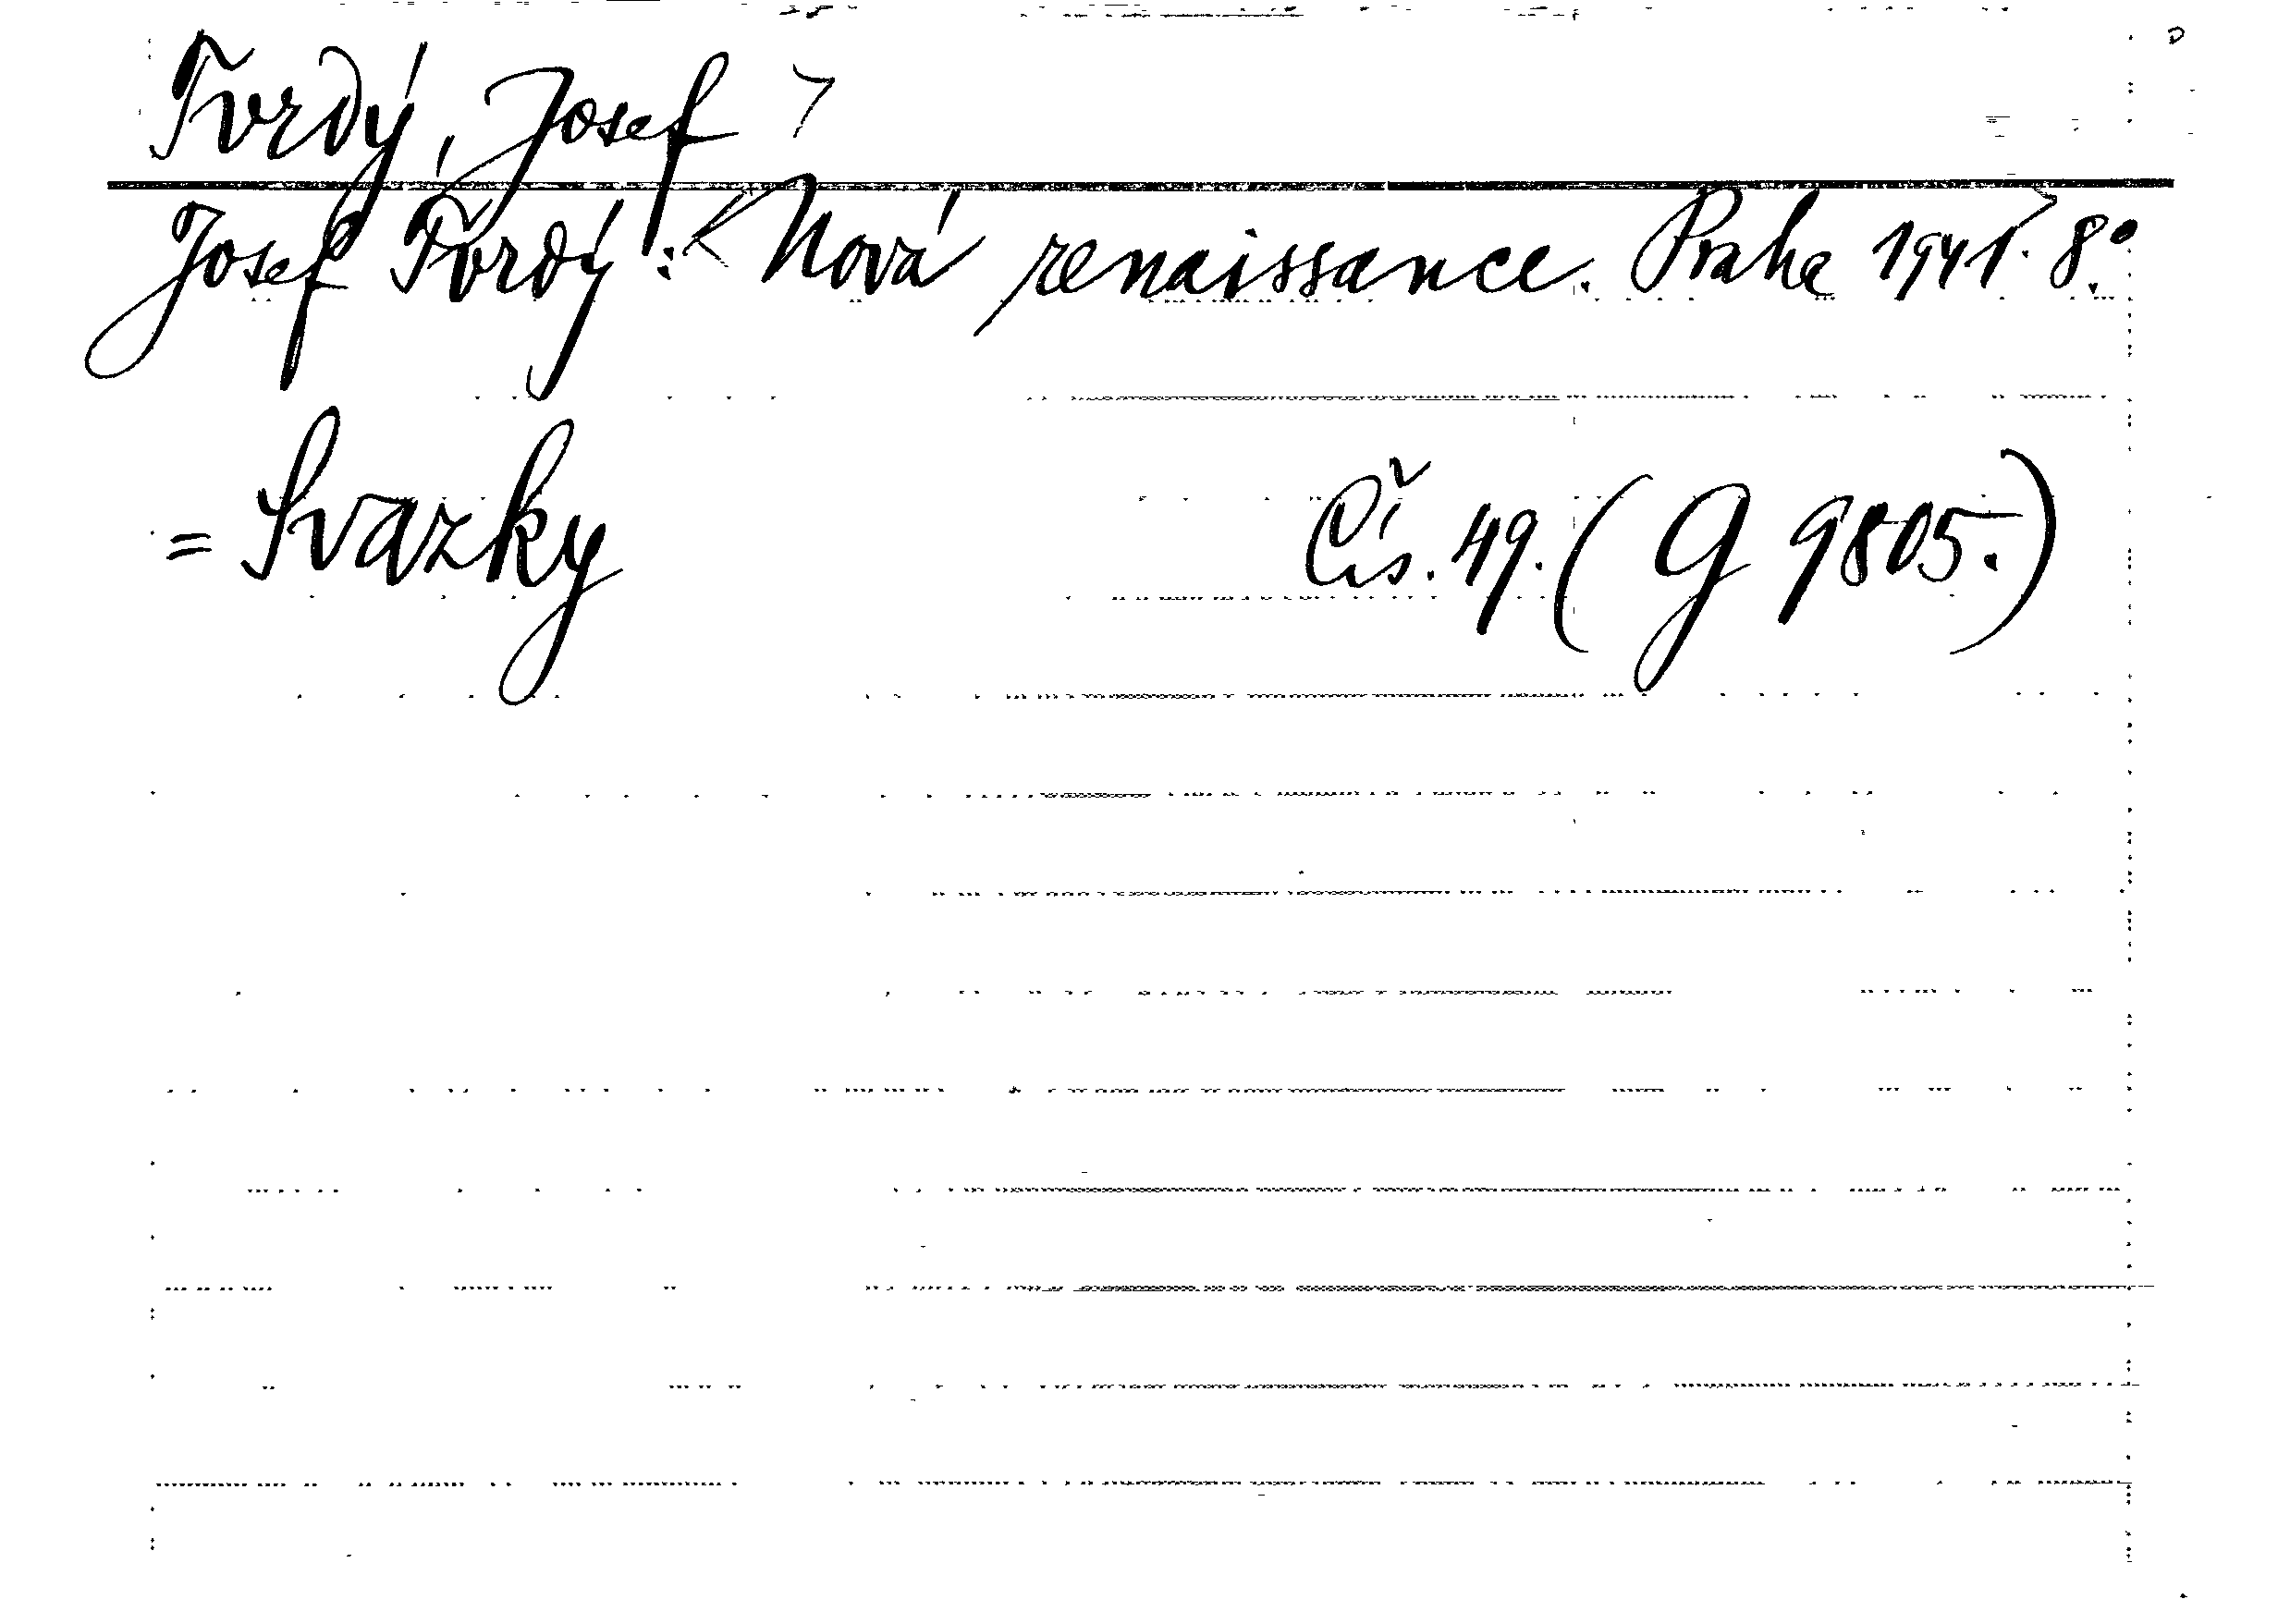 Tvrdý, Josef
Josef Tvrdý: Nová renaissance. Praha 1941. 8°.
= Svazky Čís. 49. (G 9805.)